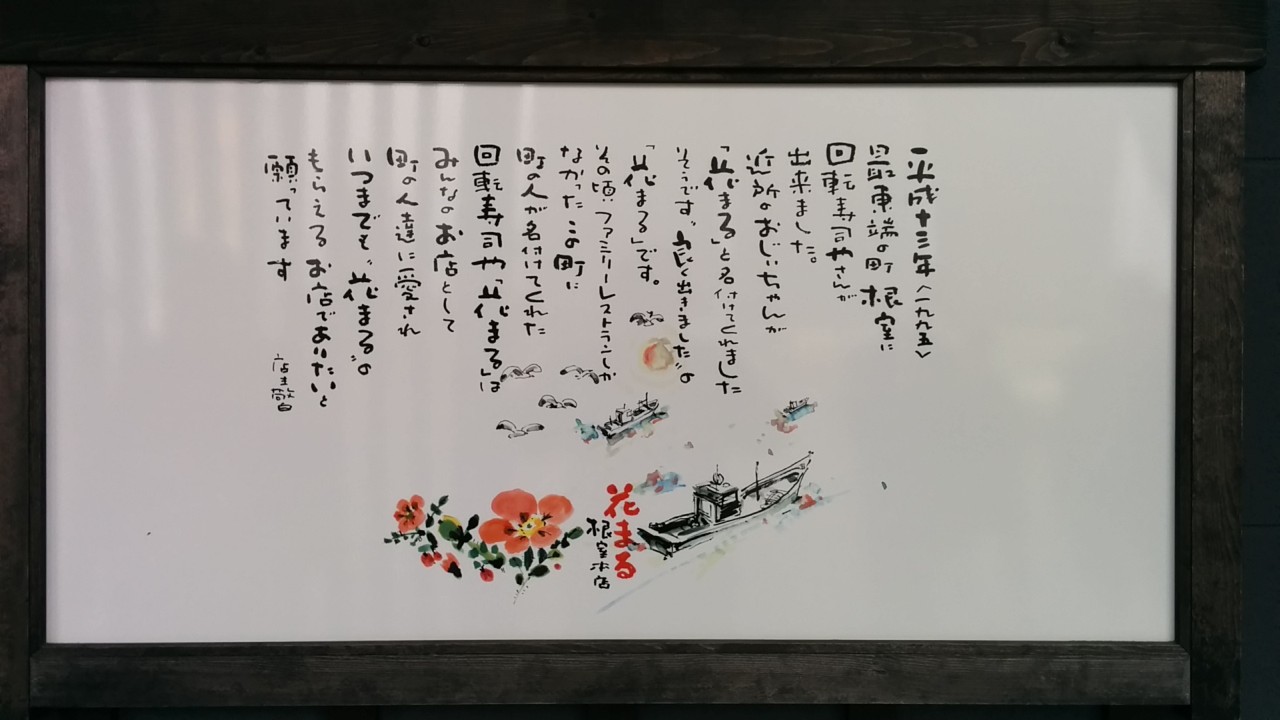 平成十三年〈一九九五〉
最東端の町 根室に
回転寿司やさんが
出来ました。
近所のおじいちゃんが
「花まる」と名付けてくれました
そうです〝良く出きました〟の
「花まる」です。
その頃 ファミリーレストランしか
なかった この町に
町の人が名付けてくれた
回転寿司や「花まる」は
みんなのお店として
町の人達に愛され
いつまでも〝花まる〟の
もらえる お店でありたいと
願っています
店主敬白
花まる
根室本店